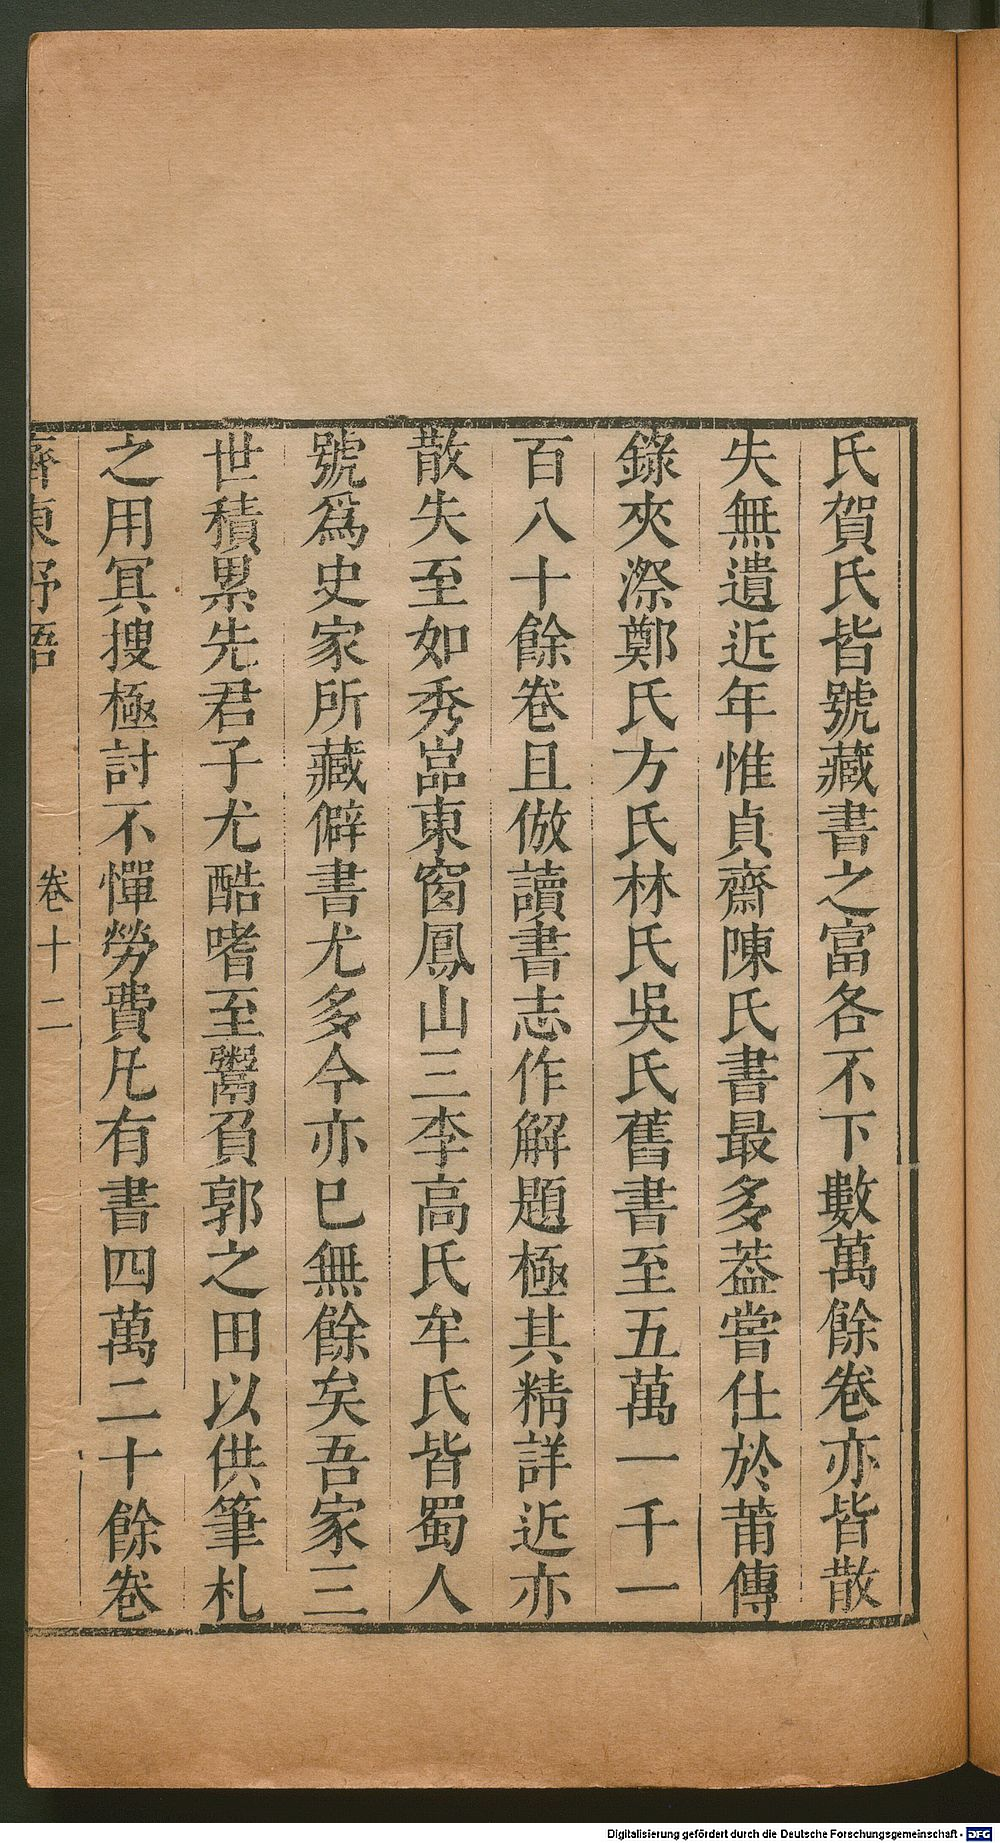 氏賀氏皆號藏書之富各不下數萬餘卷亦皆散
失無遺近年惟貞齋陳氏書最多葢嘗仕於莆傳
錄夾漈鄭氏方氏林氏吳氏舊書至五萬一千一
百八十餘卷且倣讀書志作解題極其精詳近亦
散失至如秀嵓東窗鳳山三李高氏牟氏皆蜀人
號爲史家所藏僻書尤多今亦巳無餘矣吾家三
世積累先君子尤酷嗜至鬻負郭之田以供筆札
之用冥搜極討不憚勞費凡有書四萬二十餘卷
齊東野語 卷十二
Digitalisierung gefördert durch die Deutsche Forschungsgemeinschaft - DFG